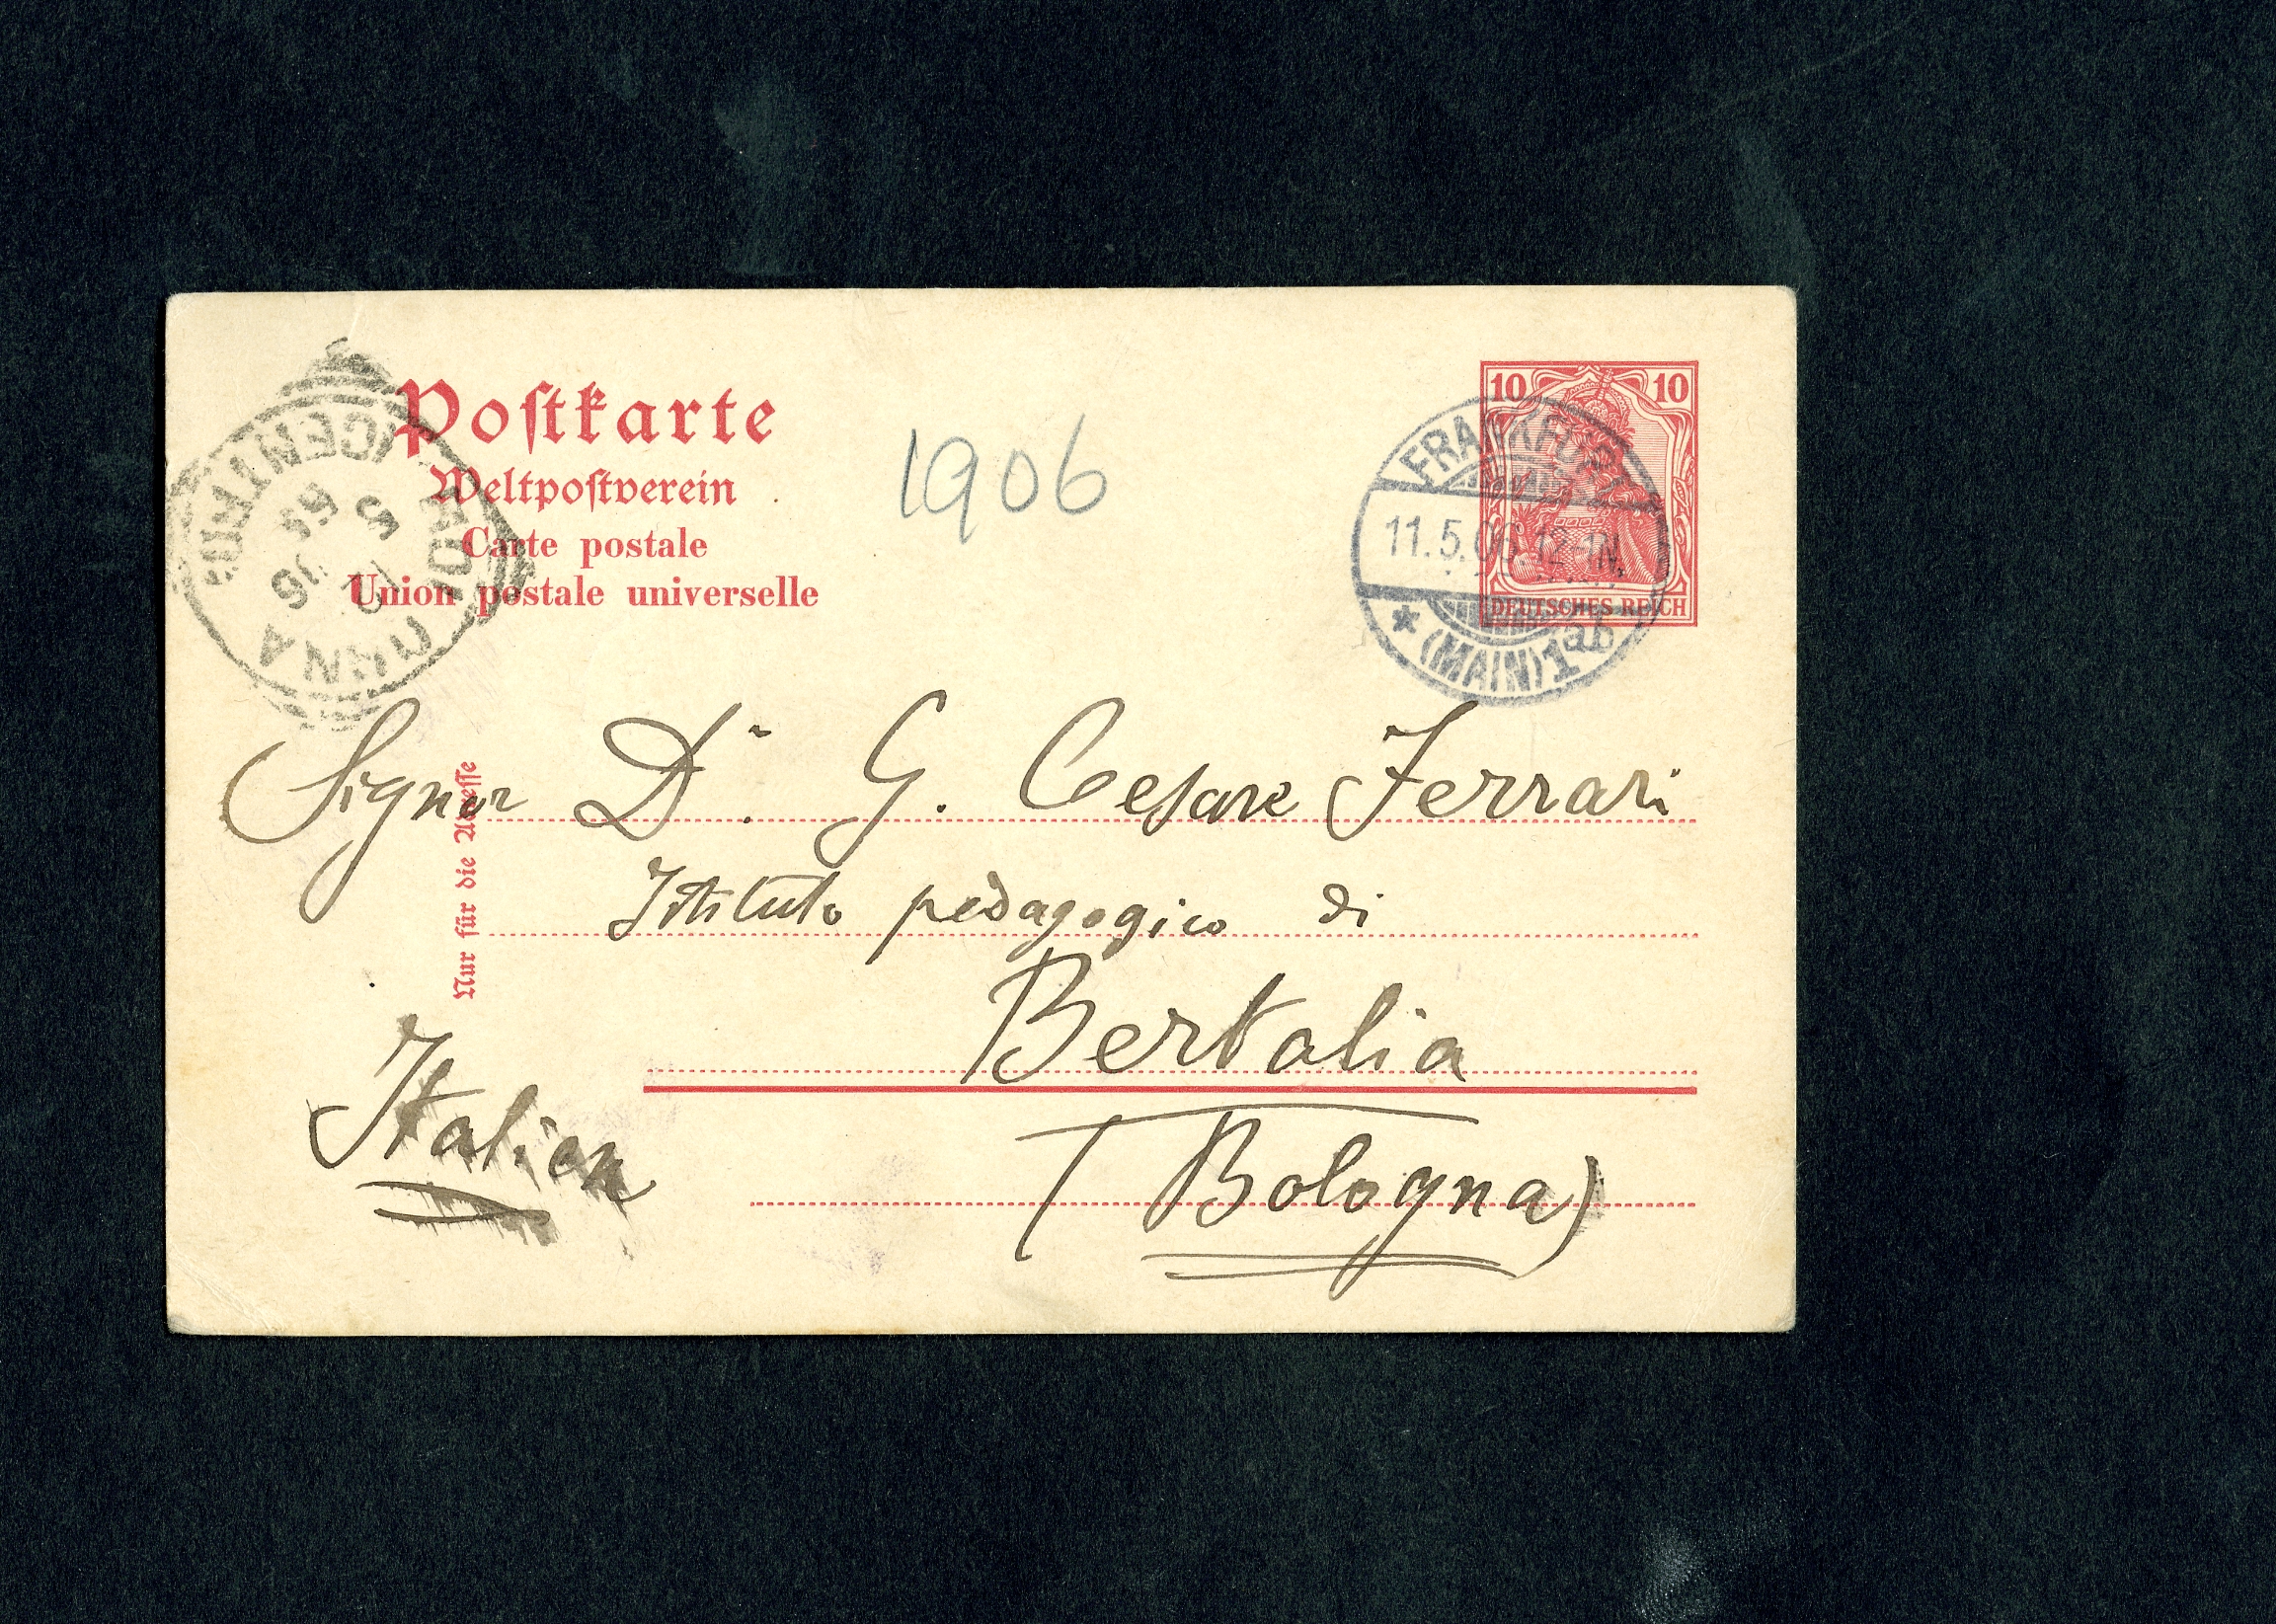 Postkarte
Weltpostverein
Carte postale
Union postale universelle
1906
10 10
DEUTSCHES REICH
FRANKFURT
11.5.06. 12-1N.
* (MAIN) 1ab
Nur für die Adresse
Signor Dr. G. Cesare Ferrari
Istituto pedagogico di
Bertalia
(Bologna)
Italien